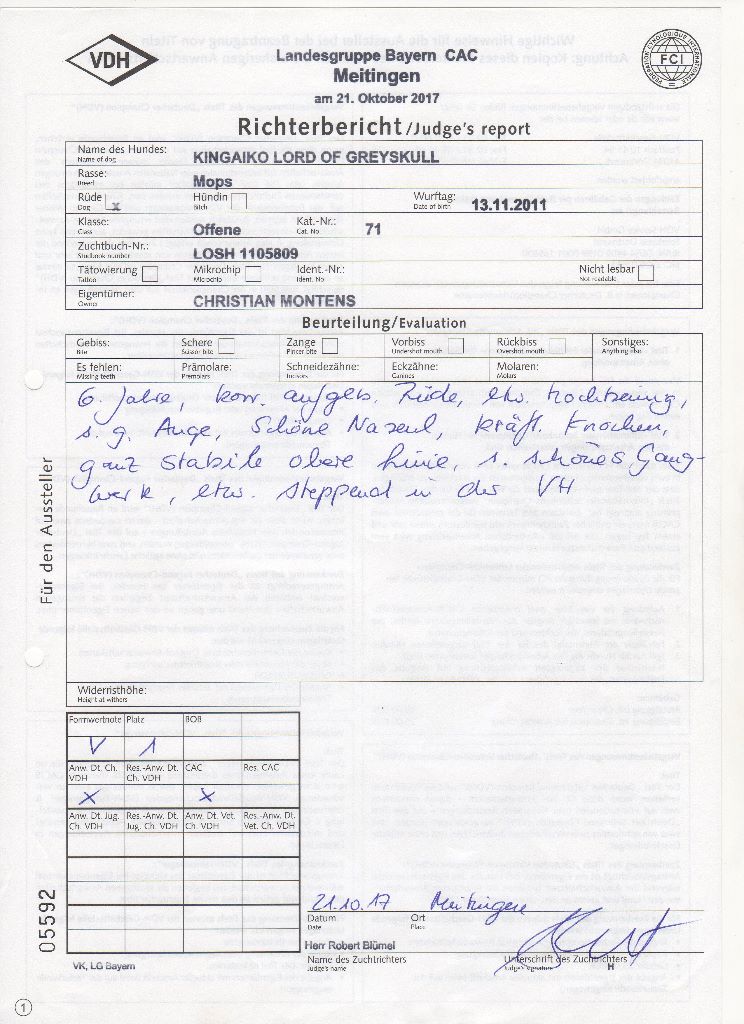 VDH
Landesgruppe Bayern CAC
Meitingen
am 21. Oktober 2017
FEDERATION CYNOLOGIQUE INTERNATIONALE
FCI
Richterbericht/Judge's report
Name des Hundes:
Name of dog
KINGAIKO LORD OF GREYSKULL
Rasse:
Breed
Mops
Rüde x Hündin Wurftag: 13.11.2011
Dog Bitch Date of birth
Klasse: Offene Kat.-Nr.: 71
Class Cat. No.
Zuchtbuch-Nr.:
Studbook number
LOSH 1105809
Tätowierung Mikrochip Ident.-Nr.: Nicht lesbar
Tattoo Microchip Ident. No. Not readable
Eigentümer:
Owner
CHRISTIAN MONTENS
Beurteilung/Evaluation
Gebiss: Schere Zange Vorbiss Rückbiss Sonstiges:
Bite Scissor bite Pincer bite Undershot mouth Overshot mouth Anything else
Es fehlen: Prämolare: Schneidezähne: Eckzähne: Molaren:
Missing teeth Premolars Incisors Canines Molars
6 Jahre, korr. aufgeb. Rüde, etw. hochbeinig,
s. g. Auge, schöne Nasenl, kräft. Knochen,
ganz stabile obere Linie, s. schönes Gang-
werk, etw. steppend in der VH
Für den Aussteller
Widerristhöhe:
Height at withers
Formwertnote Platz BOB
V 1
Anw. Dt. Ch. VDH Res.-Anw. Dt. Ch. VDH CAC Res. CAC
x x
Anw. Dt. Jug. Ch. VDH Res.-Anw. Dt. Jug. Ch. VDH Anw. Dt. Vet. Ch. VDH Res.-Anw. Dt. Vet. Ch. VDH
05592
21.10.17 Meitingen
Datum Ort
Date Place
Herr Robert Blümel
Name des Zuchtrichters Unterschrift des Zuchtrichters
Judge's name Judge's signature H
VK, LG Bayern
1